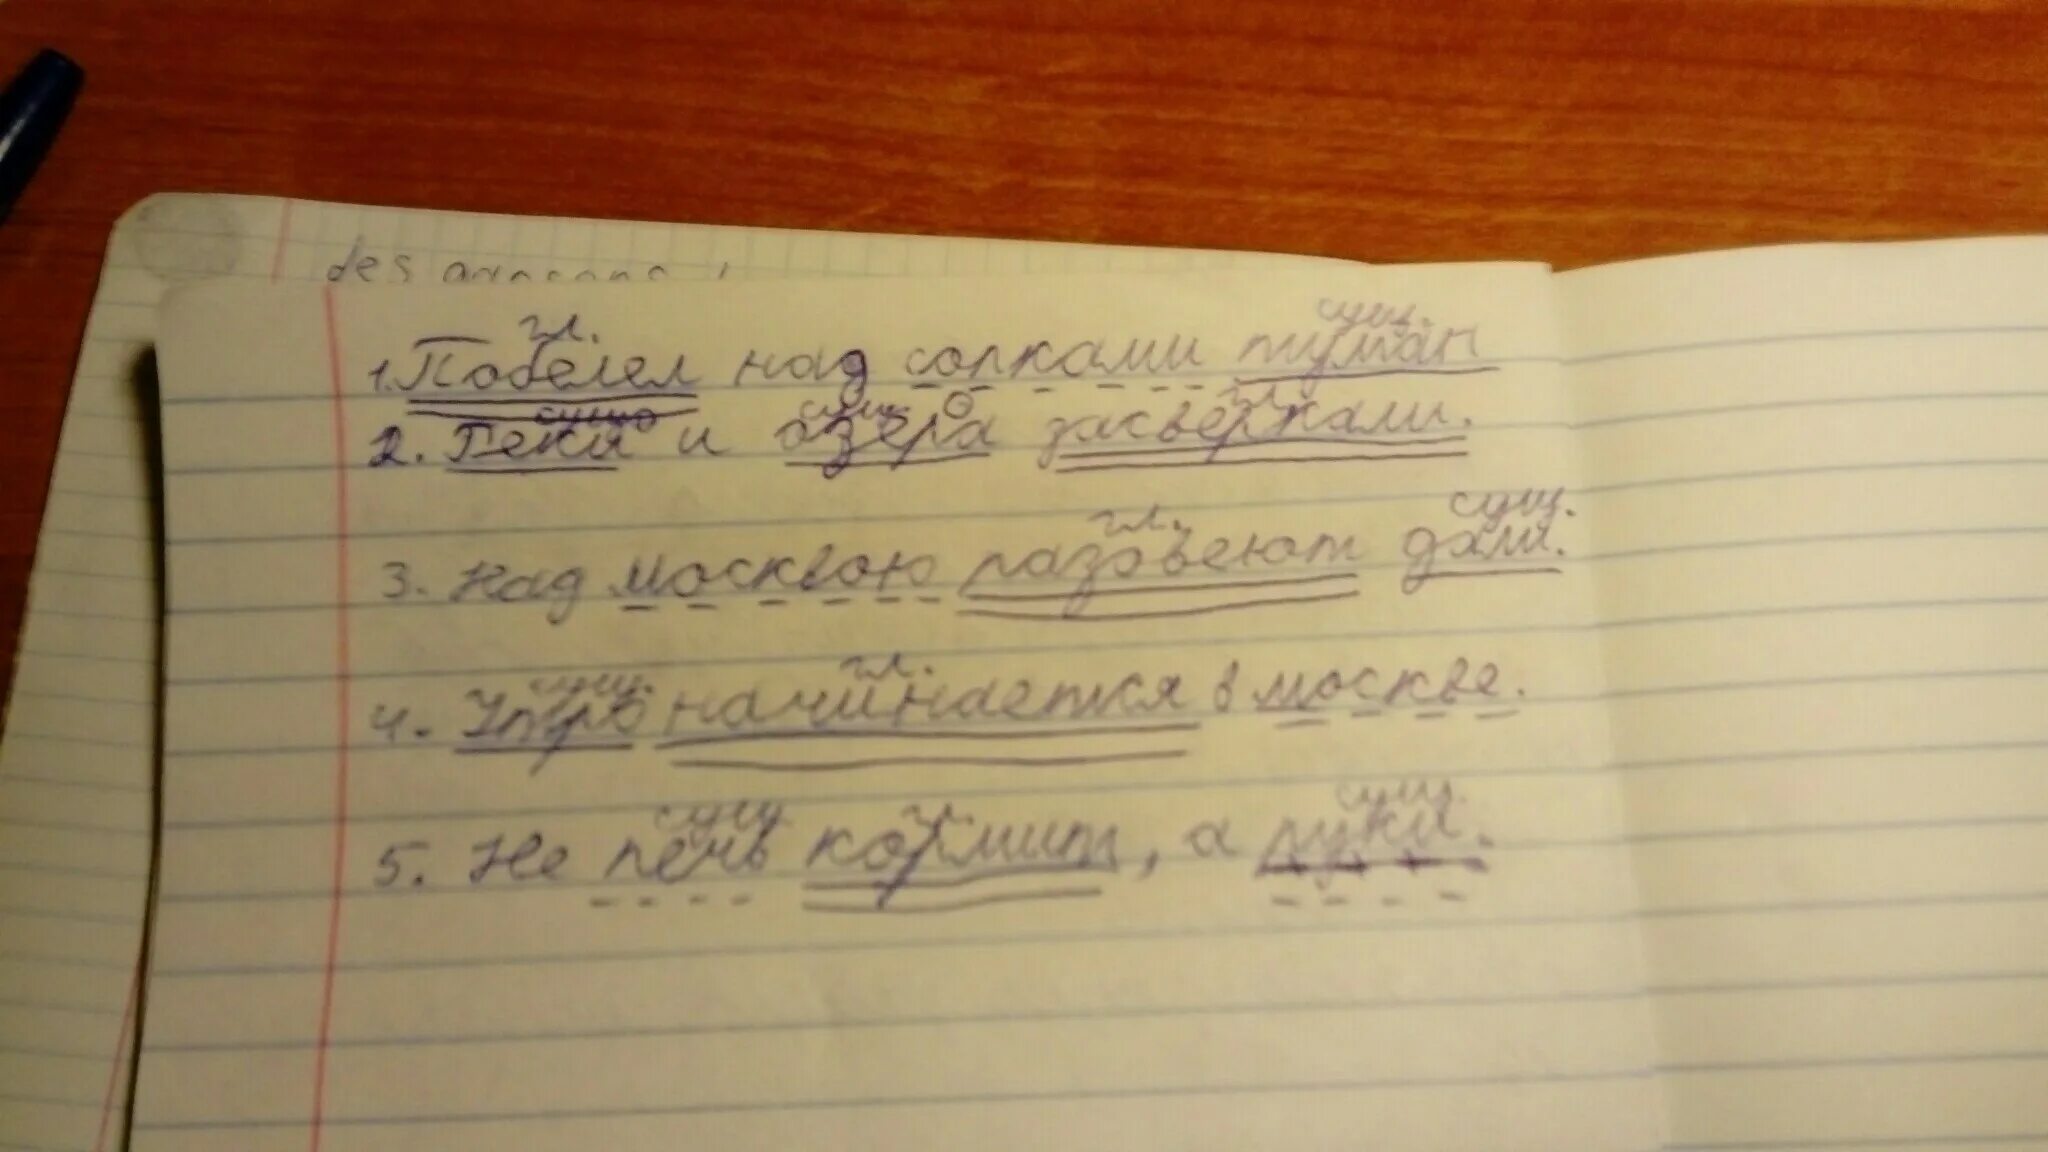 des
гл. сущ.
1. Побелел над сопками туман
сущ. гл.
2. Реки и озёра засверкали.
гл. сущ.
3. Над москвою разовеют дали.
сущ. гл.
4. Утро начинается в москве.
сущ гл. сущ.
5. Не печь кормит, а руки.